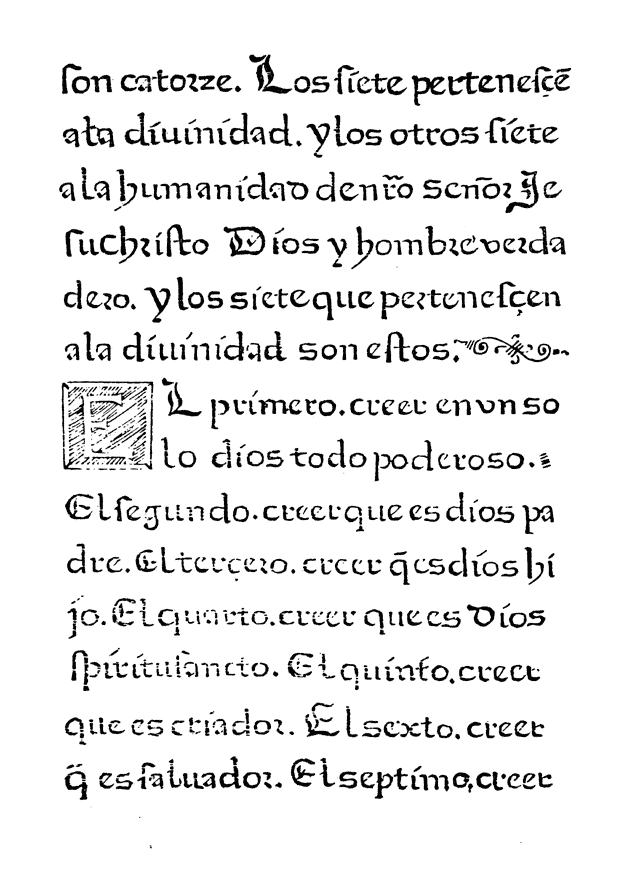 ſon catorze. Los ſiete perteneſcē
ala diuinidad. y los otros ſiete
a la humanidad den r̃o señor Je
ſuchriſto Dios y hombre verda
dero. y los siete que perteneſçen
ala diuinidad son eſtos.
EL primero. creer en vn so
lo dios todo poderoso.
El ſegundo. creer que es dios pa
dre. El terçero. creer q̄ es dios hi
jo. El quarto. creer que es Dios
ſpiritu ſancto. El quinto. creer
que es criador. El sexto. creer
q̄ es ſaluador. El septimo, creer